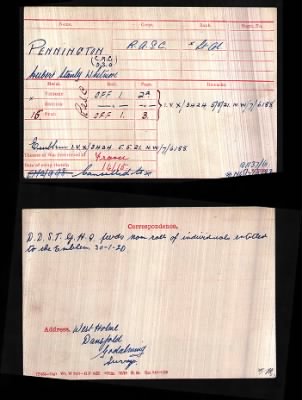 Name.
Corps.
Rank.
Regtl. No.
PENNINGTON
R.A.S.C.
(C.M.G.
D.S.O.
Herbert Stanley
Medal.
Roll.
Page.
Remarks.
Victory
RASC
OFF 1.
2A
I.V.X/3424 5/5/21 NW/7/6188
British
15 Star
OFF 1.
3.
Emblem I.V.X/3424 5.5.21 NW/7/6188
Theatre of War first served in
France
Date of entry therein
Correspondence.
D.D.S.T. G.H.Q. fwds nom roll of individuals entitled
to the Emblem 30-1-20
Address.
West Holme
Dunsfold
Godalming
Surrey